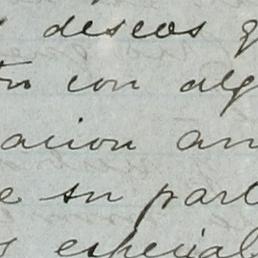 deseos
con alg
acion an
e su part
s especial